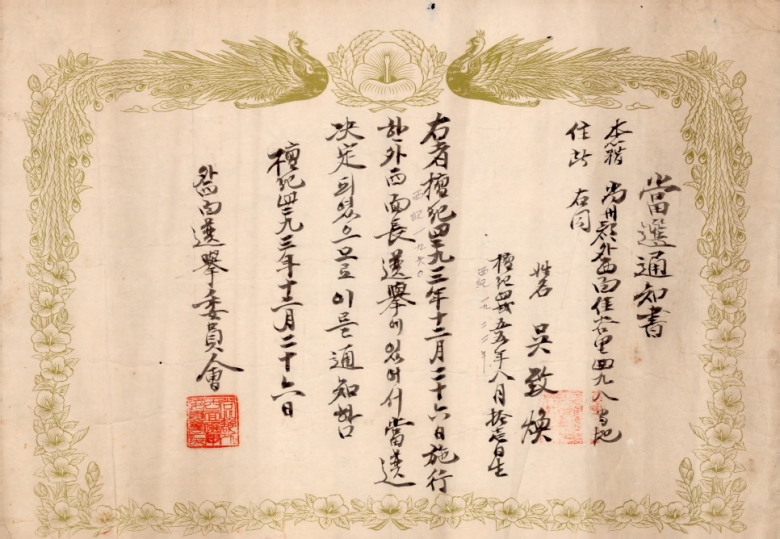 當選通知書
本籍 尙州郡外西面佳谷里四九八番地
住所 右同
姓名 吳致煥
檀紀四二五五年八月拾壱日生
西紀 一九二二年
右者檀紀四二九三年十二月二十六日施行
西紀一九六〇
한外西面長選擧에있어서當選
決定되였으므로이를通知함
檀紀四二九三年十二月二十六日
外西面選擧委員會